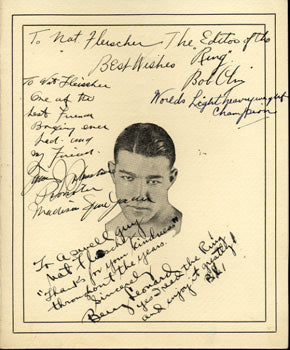 To Nat Fleischer The Editor of the
Ring
Best Wishes
Bob Olin
Worlds Light heavyweight
Champion
To Nat Fleischer
One of the
best Friends
Boxing ever
had. and
my Friend.
James J. Johnston
Promoter
Madison Sque Garden
To A Swell guy
Nat Fleischer
"Thanks for your kindness"
throughout the years.
Sincerely
Benny Leonard
yes I read the Ring
and enjoy it greatly!
BL!